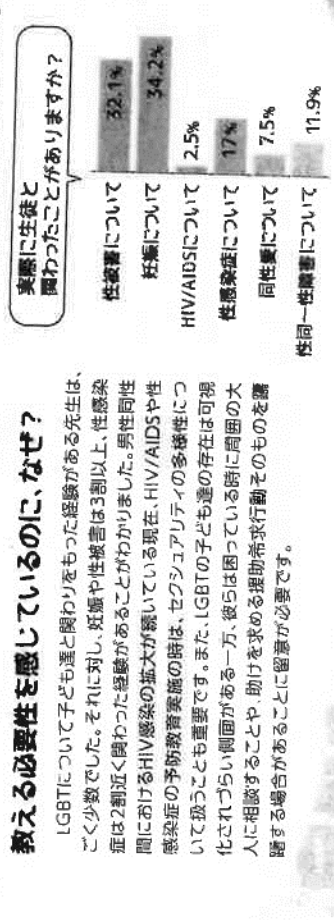 教える必要性を感じているのに、なぜ?
LGBTについて子ども達と関わりをもった経験がある先生は、
ごく少数でした。それに対し、妊娠や性被害は3割以上、性感染
症は2割近く関わった経験があることがわかりました。男性同性
間におけるHIV感染の拡大が続いている現在、HIV/AIDSや性
感染症の予防教育実施の時は、セクシュアリティの多様性につ
いて扱うことも重要です。また、LGBTの子ども達の存在は可視
化されづらい側面がある一方、彼らは困っている時に周囲の大
人に相談することや、助けを求める援助希求行動そのものを躊
躇する場合があることに留意が必要です。
実際に生徒と
関わったことがありますか?
性被害について 32.1%
妊娠について 34.2%
HIV/AIDSについて 2.5%
性感染症について 17%
同性愛について 7.5%
性同一性障害について 11.9%